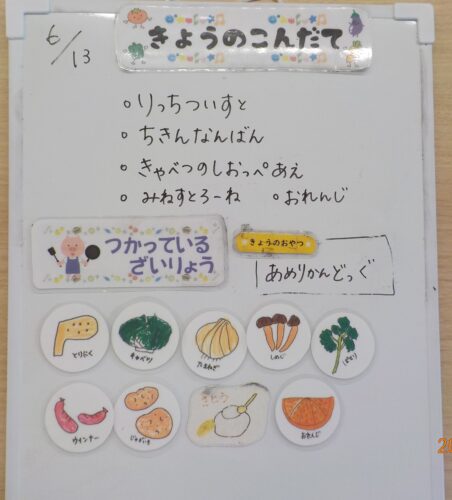 6/13
きょうのこんだて
○りっちついすと
○ちきんなんばん
○きゃべつのしおっぺあえ
○みねすとろーね ○おれんじ
つかっている
ざいりょう
きょうのおやつ
あめりかんどっぐ
とりにく キャベツ たまねぎ しめじ ぱせり
ウインナー じゃがいも さとう おれんじ